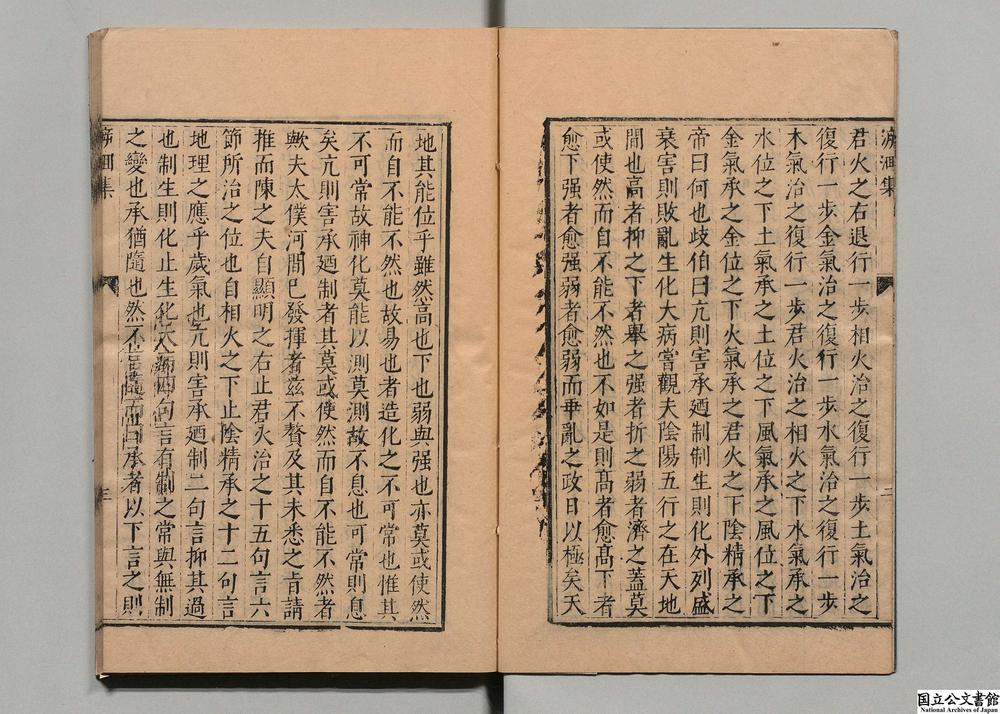 君火之右退行一歩相火治之復行一歩土氣治之
復行一歩金氣治之復行一歩水氣治之復行一歩
木氣治之復行一歩君火治之相火之下水氣承之
水位之下土氣承之土位之下風氣承之風位之下
金氣承之金位之下火氣承之君火之下陰精承之
帝曰何也歧伯曰亢則害承廼制制生則化外列盛
衰害則敗亂生化大病嘗觀夫陰陽五行之在天地
間也高者抑之下者舉之强者折之弱者濟之蓋莫
或使然而自不能不然也不如是則髙者愈髙下者
愈下强者愈强弱者愈弱而乖亂之政日以極矣天
泝洄集
二
地其能位乎雖然高也下也弱與强也亦莫或使然
而自不能不然也故易也者造化之不可常也惟其
不可常故神化莫能以測莫測故不息也可常則息
矣亢則害承廼制者其莫或使然而自不能不然者
歟夫太僕河間已發揮者兹不贅及其未悉之肯請
推而陳之夫自顯明之右止君火治之十五句言六
節所治之位也自相火之下止陰精承之十二句言
地理之應乎歲氣也亢則害承廼制二句言抑其過
也制生則化止生化大病四句言有制之常與無制
之變也承猶隨也然不言隨而曰承者以下言之則
泝洄集
三
国立公文書館
National Archives of Japan